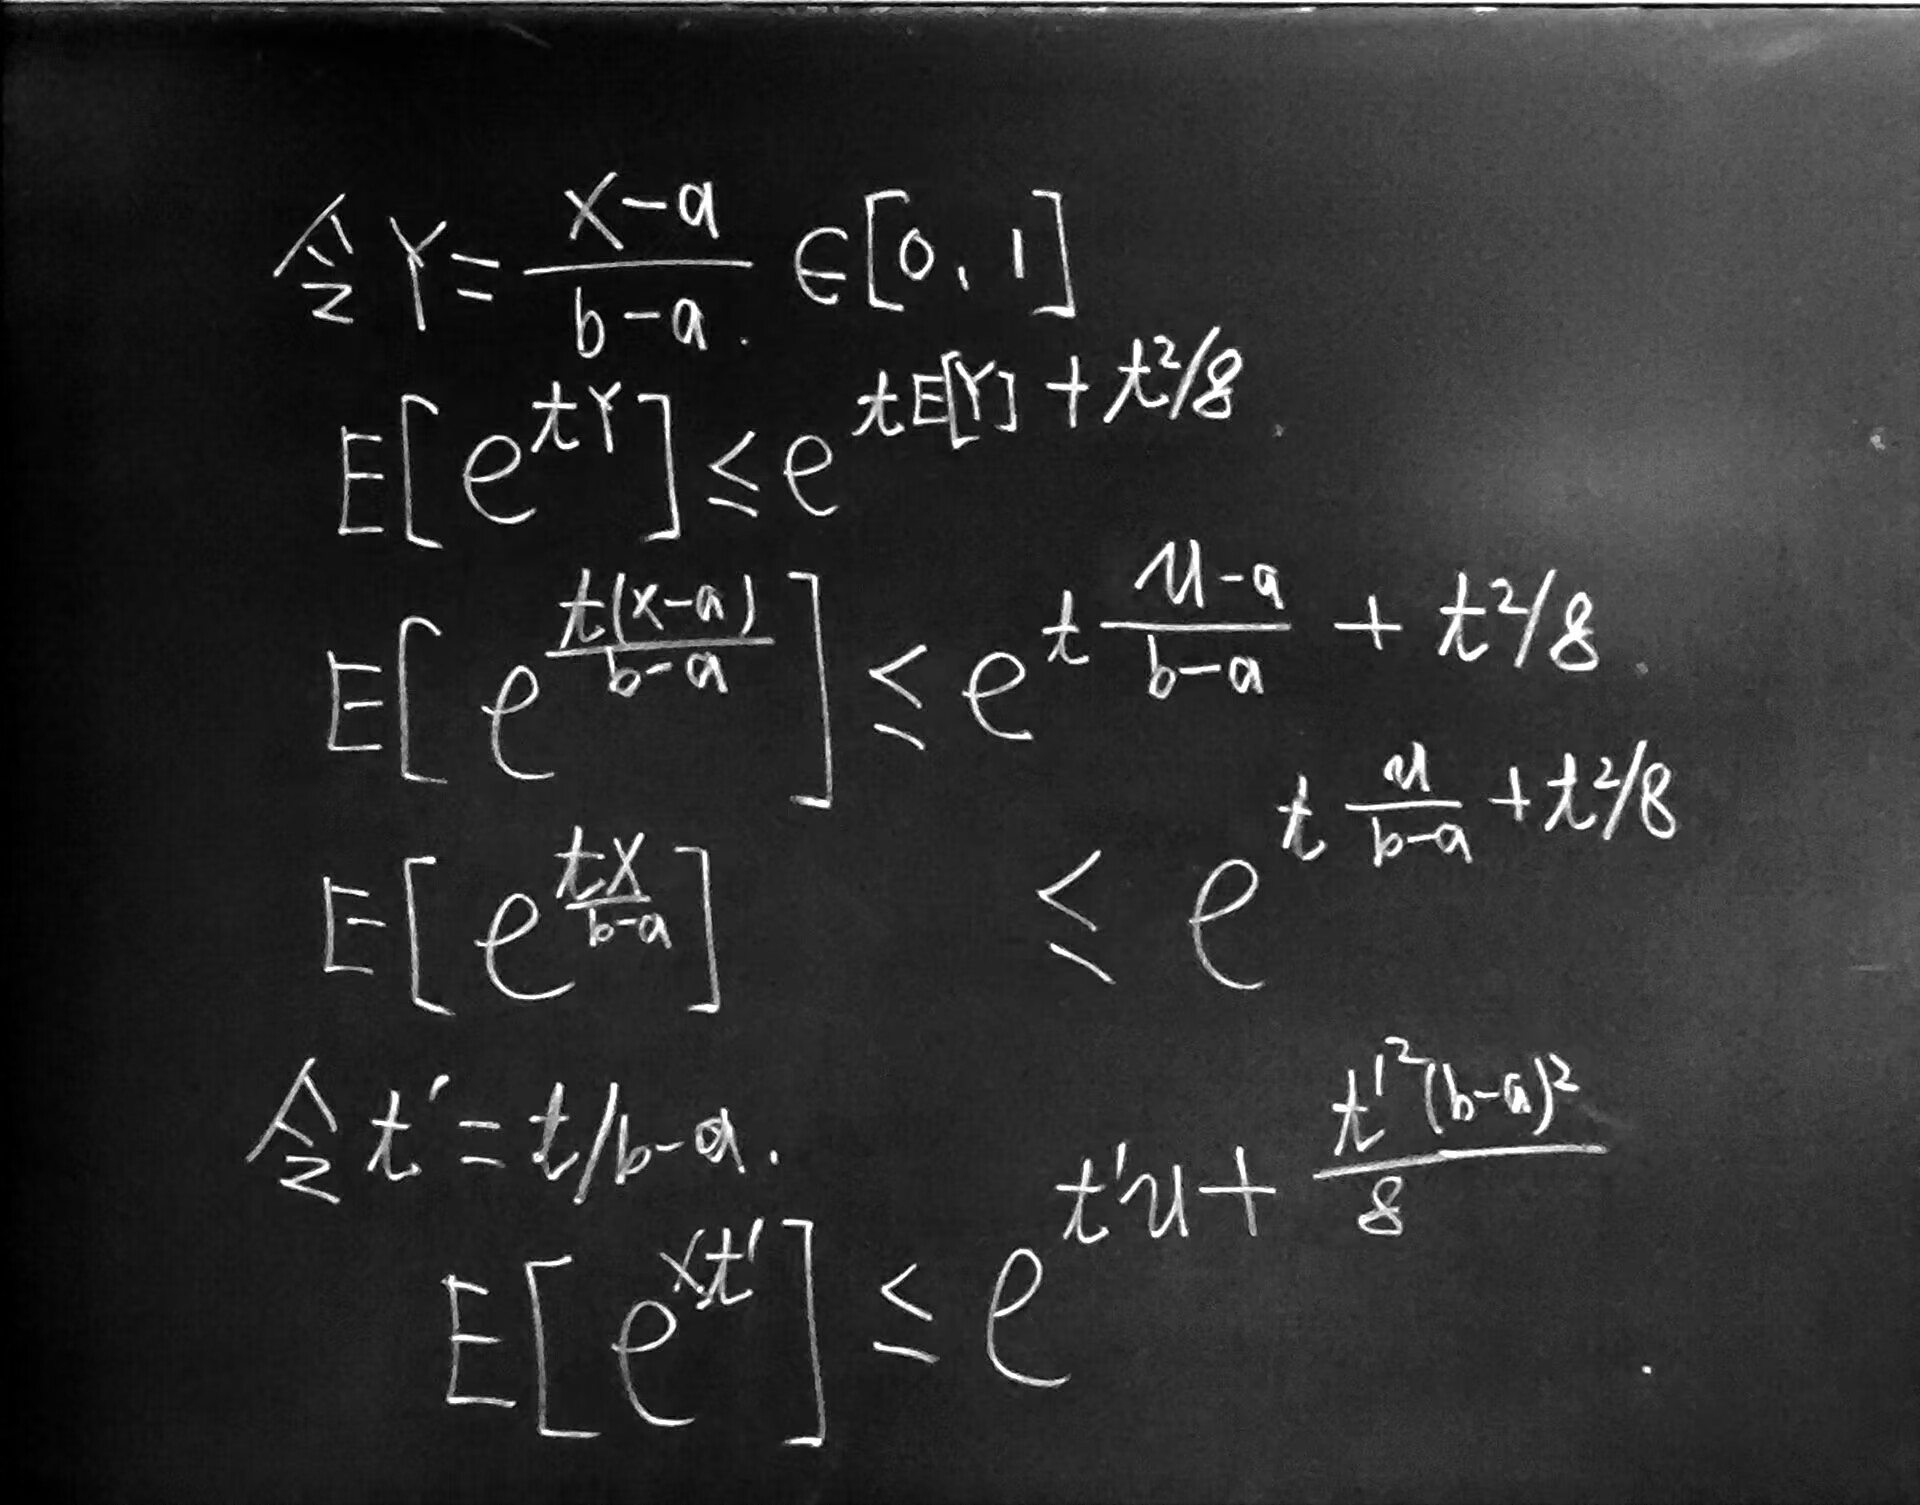 令 Y = \frac{X-a}{b-a}. ∈ [0, 1]
E[e^{tY}] ≤ e^{tE[Y] + t^2/8}.
E[e^{\frac{t(x-a)}{b-a}}] ≤ e^{t\frac{u-a}{b-a} + t^2/8}.
E[e^{\frac{tX}{b-a}}] ≤ e^{t\frac{u}{b-a} + t^2/8}
令 t' = t/b-a.
E[e^{xt'}] ≤ e^{t'u + \frac{t'^2(b-a)^2}{8}}.